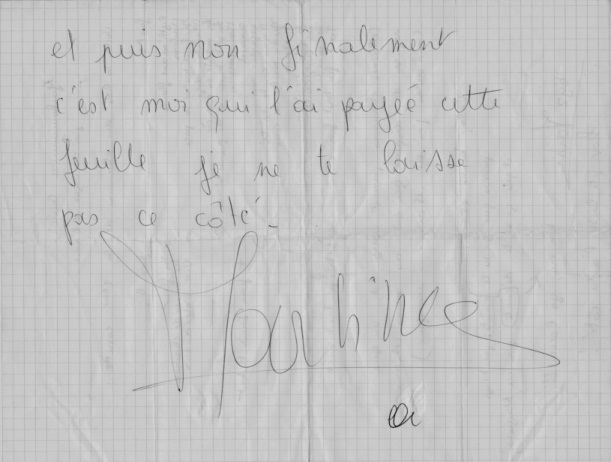 et puis non finalement
c'est moi qui l'ai payée cette
feuille je ne te laisse
pas ce côté -
Martine